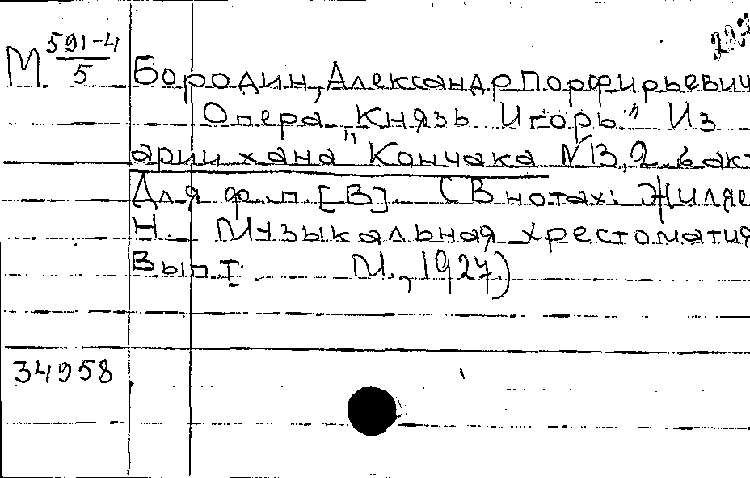 М 591-4
5
Бородин, Александр Порфирьевич
Опера „Князь Игорь" Из
арии хана Кончака №13, 2. акт
Для ф.п. [В]. (В нотах: Жиляе
Н. Музыкальная хрестоматия
Вып. I. М., 1927)
34958